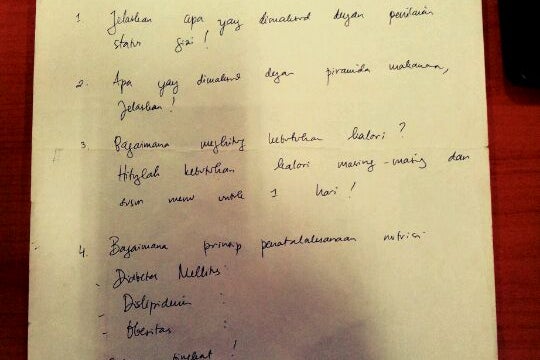 1. Jelaskan apa yang dimaksud dengan penilaian
status gizi!
2. Apa yang dimaksud dengan piramida makanan,
Jelaskan!
3. Bagaimana menghitung kebutuhan kalori?
Hitunglah kebutuhan kalori masing-masing dan
susun menu untuk 1 hari!
4. Bagaimana prinsip penatalaksanaan nutrisi
- Diabetes Mellitus :
- Dislipidemia :
- Obesitas :
singkat!